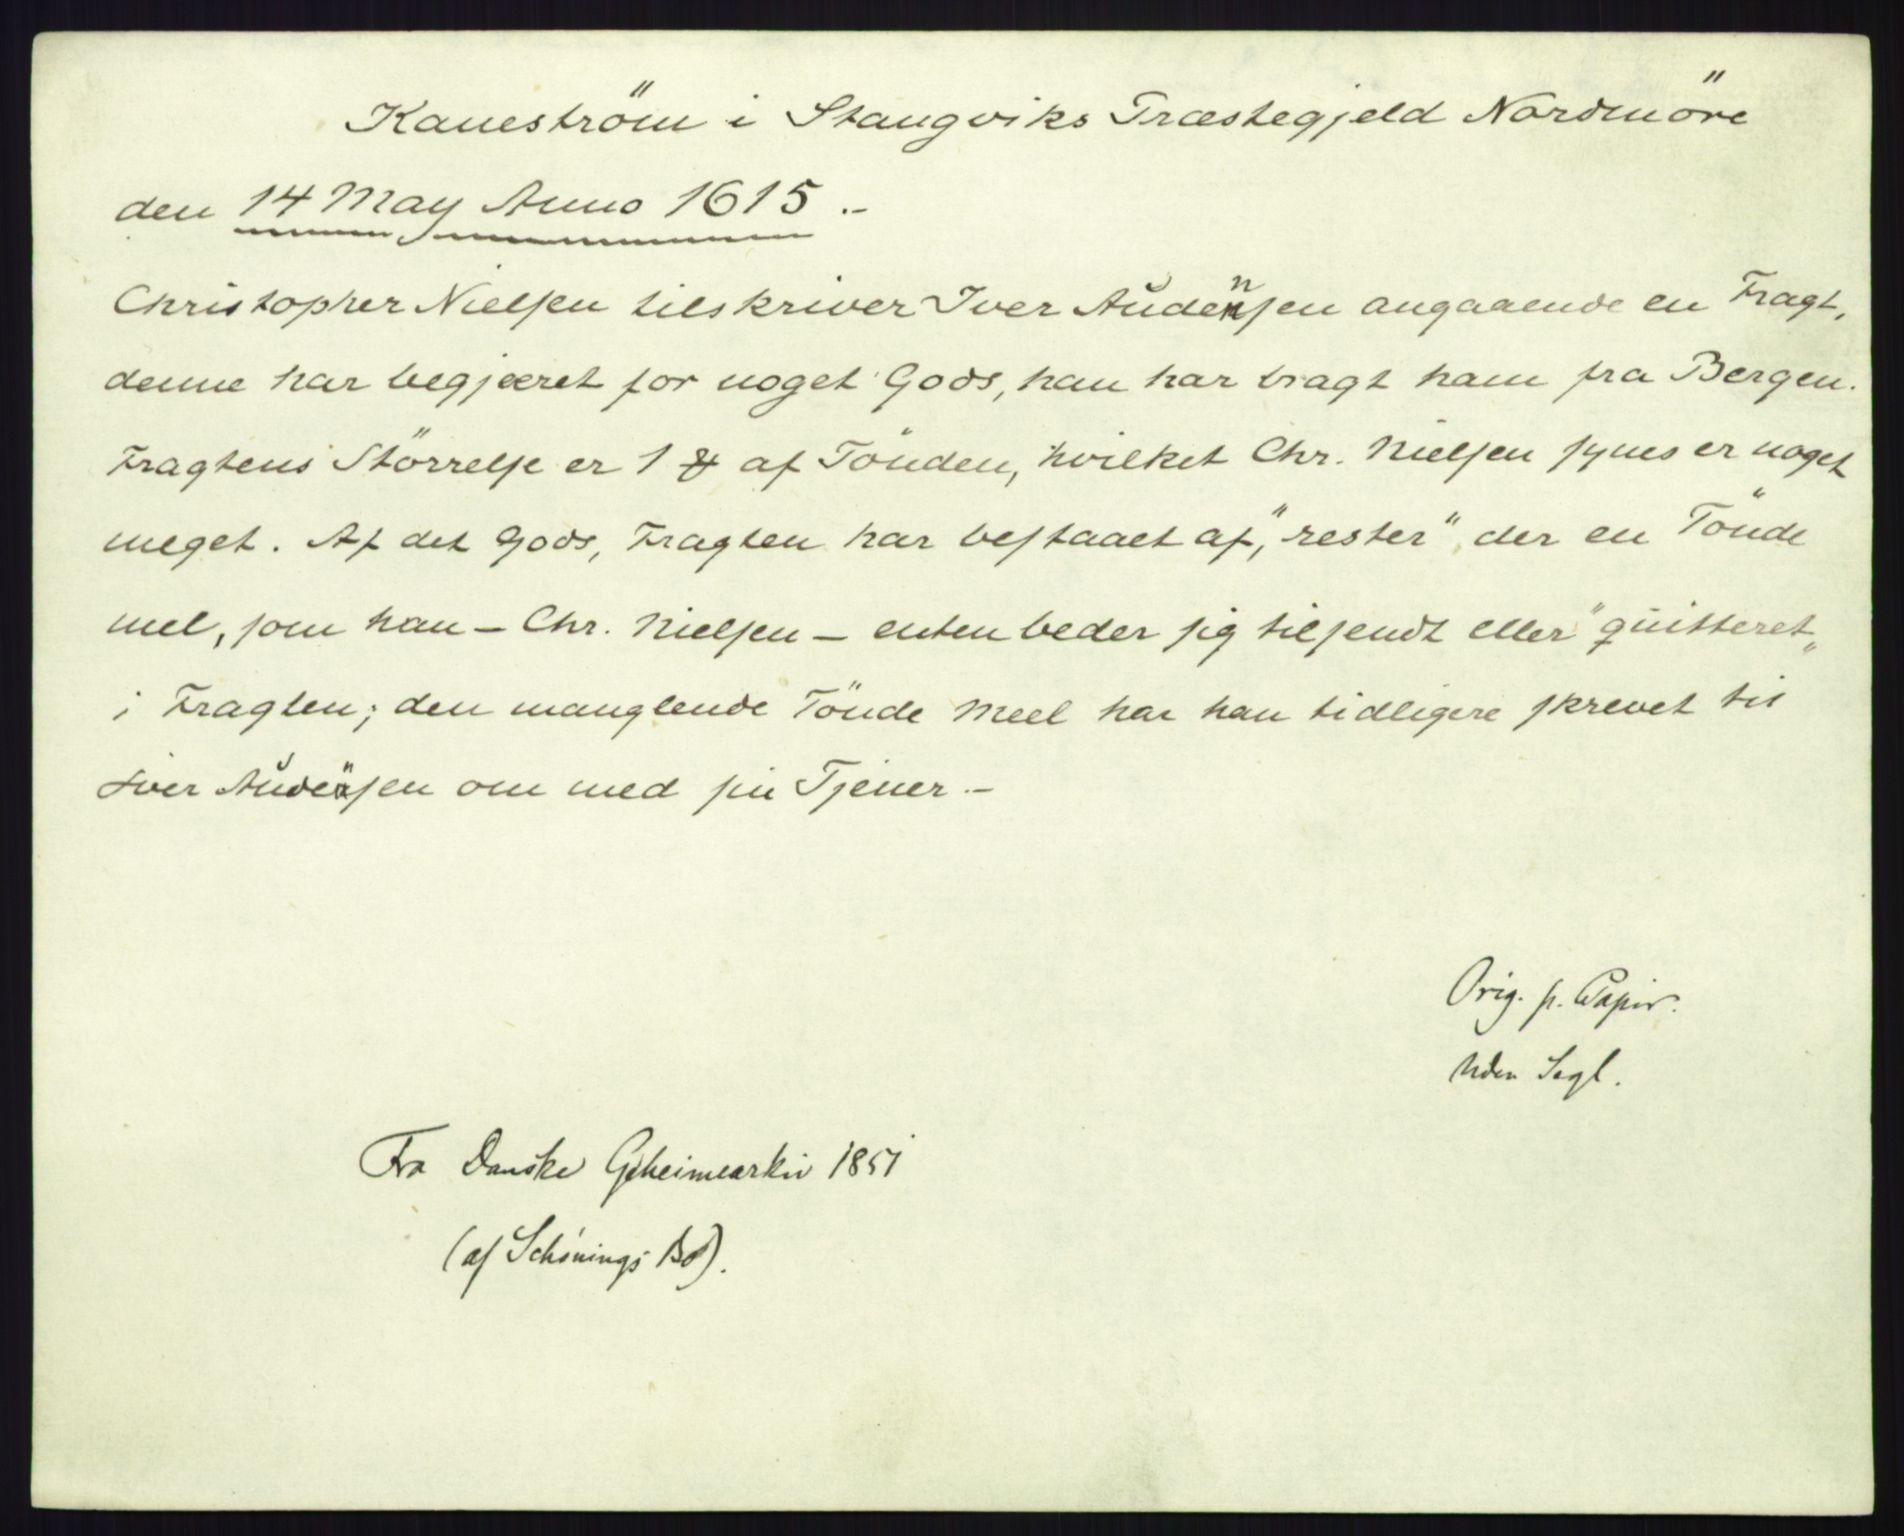 Kaneström i Stangviks Præstegjeld Nordmöre
den 14 May Anno 1615.-
Christopher Nielsen tilskriver Iver Audensen angaaende en Fragt,
denne har begjæret for noget Gods, han har bragt ham fra Bergen.
Fragtens Störrelse er 1 af Tönden, hvilket Chr. Nielsen synes er noget
meget. Af det Gods, Fragten har bestaaet af, "rester" der en Tönde
mel, som han – Chr. Nielsen – enten beder sig tilsendt eller "quitteret"
i Fragten; den manglende Tönde Meel har han tidligere skrevet til
Iver Audensen om med sin Tjener.-
Orig. p. Papir.
Uden Segl.
Fra Danske Geheimearkiv 1851
(af Schönings Bo).